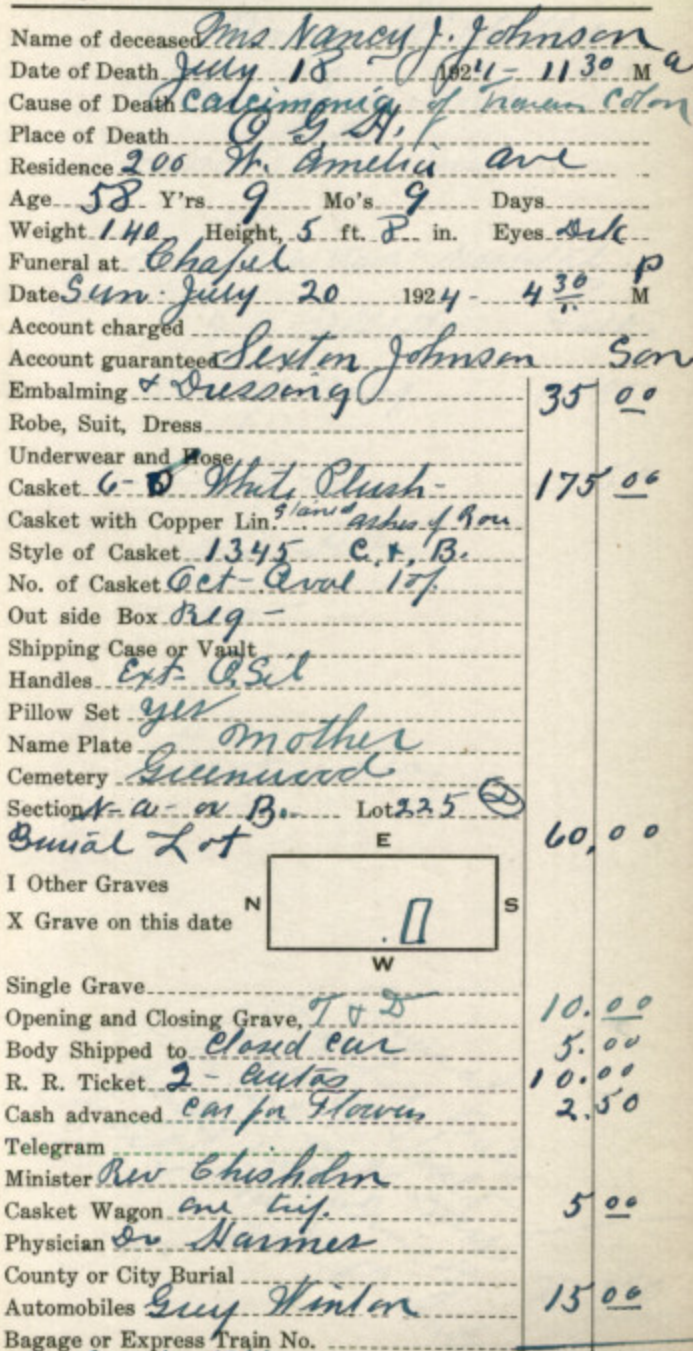 Name of deceased Mrs Nancy J. Johnson
Date of Death July 18 - 1924 - 11 30 M a
Cause of Death Carcimonia of Colon
Place of Death O G H.
Residence 200 W. Amelia ave
Age 58 Y'rs 9 Mo's 9 Days
Weight 140 Height, 5 ft. 8 in. Eyes Drk
Funeral at Chapel
Date Sun. July 20 1924 - 4 30 P M
Account charged
Account guaranteed Sexton Johnson Son
Embalming & Dressing 35 00
Robe, Suit, Dress
Underwear and Hose
Casket 6- White Plush - 175 00
Casket with Copper Lin. ashes of
Style of Casket 1345 C. & B.
No. of Casket Oct - Oval Top
Out side Box Reg -
Shipping Case or Vault
Handles Ext-
Pillow Set yes
Name Plate Mother
Cemetery Greenwood
Section N- a- or B. Lot 225 2
Burial Lot 60,00
E
I Other Graves
N S
X Grave on this date
W
Single Grave
Opening and Closing Grave, T & D 10.00
Body Shipped to Closed Car 5.00
R. R. Ticket 2 - autos 10.00
Cash advanced Car for Flowers 2.50
Telegram
Minister Rev Chisholm
Casket Wagon one trip. 5 00
Physician Dr
County or City Burial
Automobiles Grey Winton 15 00
Bagage or Express Train No.